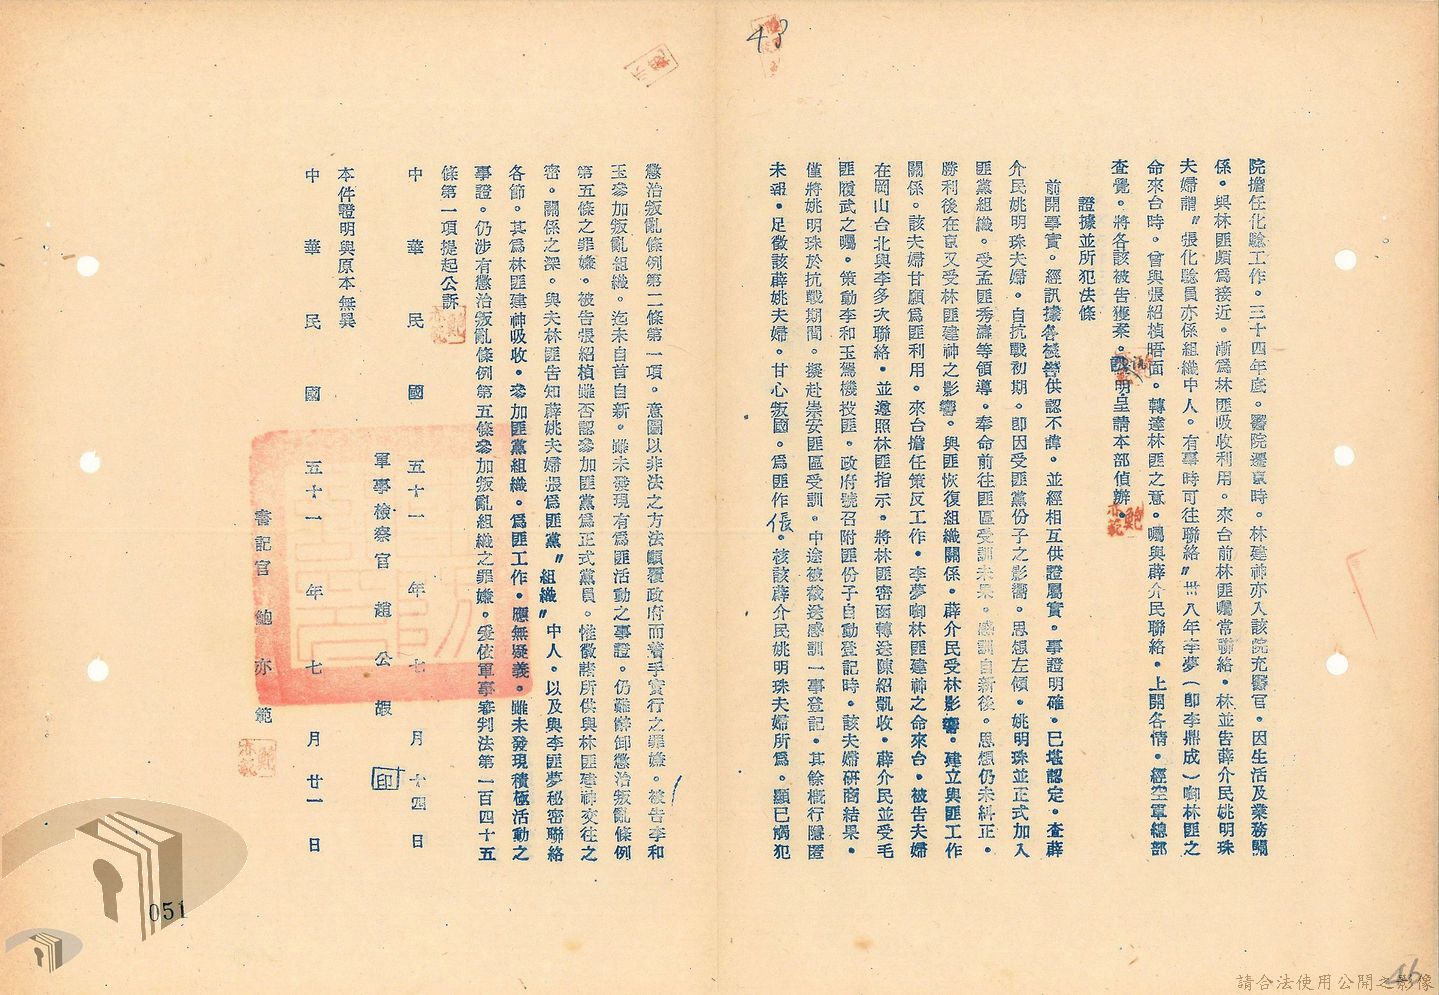 48
院擔任化驗工作。三十四年底。醫院遷京時。林建神亦入該院充醫官。因生活及業務關
係。與林匪頗為接近。漸為林匪吸收利用。來台前林匪囑常聯絡。林並告薛介民姚明珠
夫婦謂〝張化驗員亦係組織中人。有事時可往聯絡〞卅八年李夢(即李鼎成)啣林匪之
命來台時。曾與張紹楨晤面。轉達林匪之意。囑與薛介民聯絡。上開各情。經空軍總部
查覺。將各該被告獲案。明呈請本部偵辦。
證據並所犯法條
前開事實。經訊據各被告供認不諱。並經相互供證屬實。事證明確。已堪認定。查薛
介民姚明珠夫婦。自抗戰初期。即因受匪黨份子之影響。思想左傾。姚明珠並正式加入
匪黨組織。受孟匪秀濤等領導。奉命前往匪區受訓未果。感訓自新後。思想仍未糾正。
勝利後在京又受林匪建神之影響。與匪恢復組織關係。薛介民受林影響。建立與匪工作
關係。該夫婦甘願為匪利用。來台擔任策反工作。李夢啣林匪建神之命來台。被告夫婦
在岡山台北與李多次聯絡。並遵照林匪指示。將林匪密函轉送陳紹凱收。薛介民並受毛
匪履武之囑。策動李和玉駕機投匪。政府號召附匪份子自動登記時。該夫婦研商結果。
僅將姚明珠於抗戰期間。擬赴崇安匪區受訓。中途被截送感訓一事登記。其餘概行隱匿
未報。足徵該薛姚夫婦。甘心叛國。為匪作倀。核該薛介民姚明珠夫婦所為。顯已觸犯
懲治叛亂條例第二條第一項。意圖以非法之方法顛覆政府而着手實行之罪嫌。被告李和
玉參加叛亂組織。迄未自首自新。雖未發現有為匪活動之事證。仍難辭卸懲治叛亂條例
第五條之罪嫌。被告張紹楨雖否認參加匪黨為正式黨員。惟徵諸所供與林匪建神交往之
密。關係之深。與夫林匪告知薛姚夫婦張為匪黨〝組織〞中人。以及與李匪夢秘密聯絡
各節。其為林匪建神吸收。參加匪黨組織。為匪工作。應無疑義。雖未發現積極活動之
事證。仍涉有懲治叛亂條例第五條參加叛亂組織之罪嫌。爰依軍事審判法第一百四十五
條第一項提起公訴
中華民國五十一年七月十四日
軍事檢察官趙公嘏 印
本件證明與原本無異
中華民國五十一年七月廿一日
書記官鮑亦範
051
46
請合法使用公開之影像